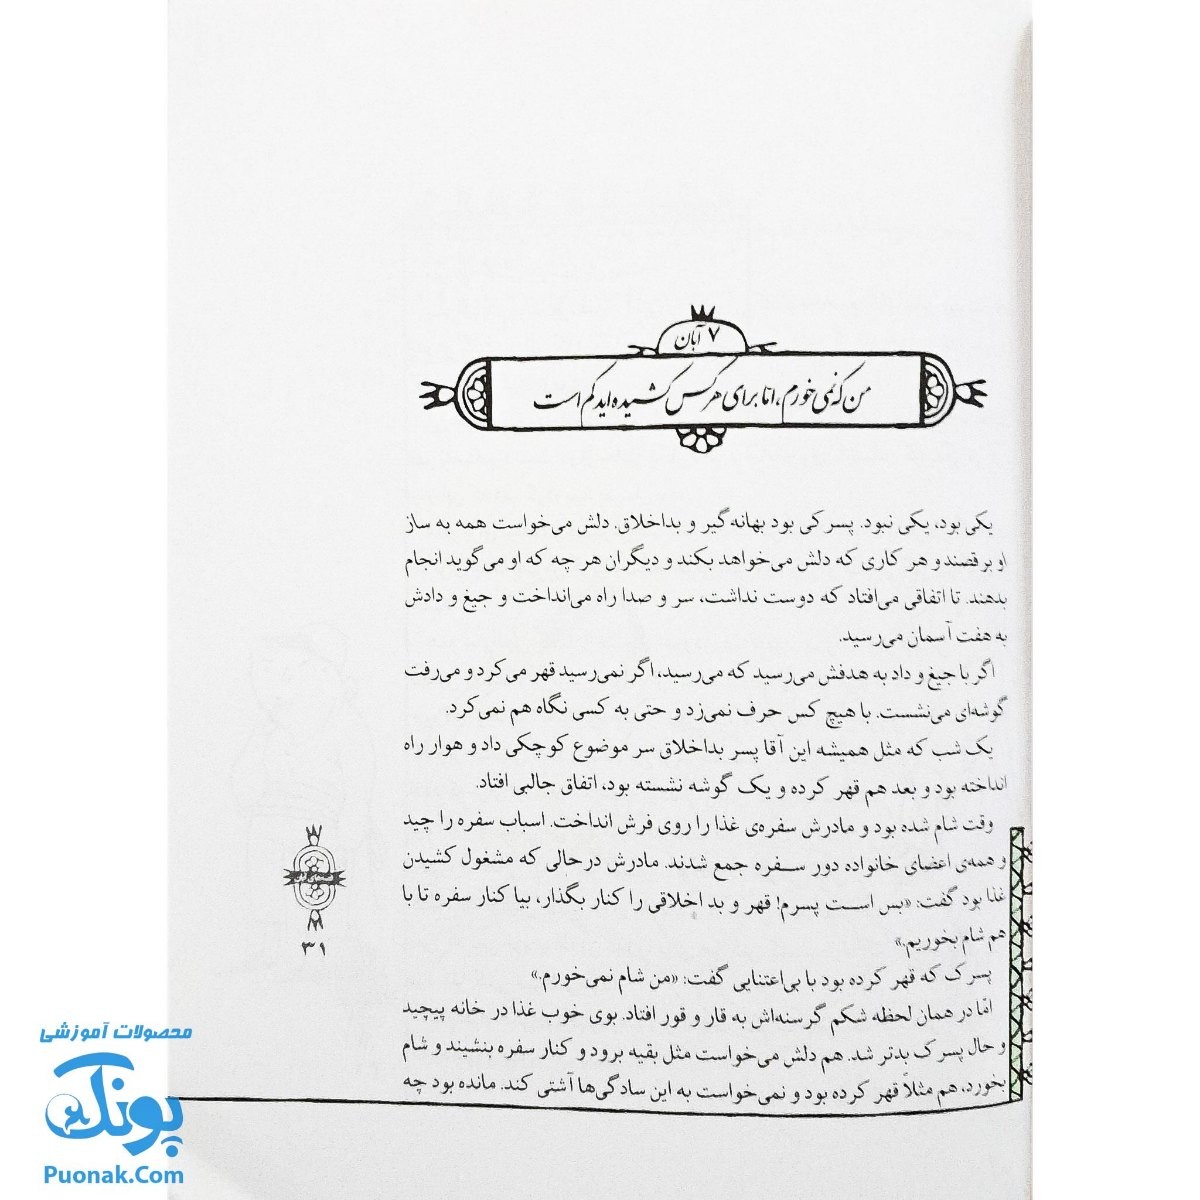 ۷ آبان
من که نمی خورم، امّا برای هر کس کشیده اید کم است
یکی بود، یکی نبود. پسرکی بود بهانه‌گیر و بداخلاق. دلش می‌خواست همه به ساز
او برقصند و هر کاری که دلش می‌خواهد بکند و دیگران هر چه که او می‌گوید انجام
بدهند. تا اتفاقی می‌افتاد که دوست نداشت، سر و صدا راه می‌انداخت و جیغ و دادش
به هفت آسمان می‌رسید.
اگر با جیغ و داد به هدفش می‌رسید که می‌رسید، اگر نمی‌رسید قهر می‌کرد و می‌رفت
گوشه‌ای می‌نشست. با هیچ کس حرف نمی‌زد و حتی به کسی نگاه هم نمی‌کرد.
یک شب که مثل همیشه این آقا پسر بداخلاق سر موضوع کوچکی داد و هوار راه
انداخته بود و بعد هم قهر کرده و یک گوشه نشسته بود، اتفاق جالبی افتاد.
وقت شام شده بود و مادرش سفره‌ی غذا را روی فرش انداخت. اسباب سفره را چید
و همه‌ی اعضای خانواده دور سفره جمع شدند. مادرش درحالی که مشغول کشیدن
غذا بود گفت: «بس است پسرم! قهر و بد اخلاقی را کنار بگذار، بیا کنار سفره تا با
هم شام بخوریم.»
پسرک که قهر کرده بود با بی‌اعتنایی گفت: «من شام نمی‌خورم.»
امّا در همان لحظه شکم گرسنه‌اش به قار و قور افتاد. بوی خوب غذا در خانه پیچید
و حال پسرک بدتر شد. هم دلش می‌خواست مثل بقیه برود و کنار سفره بنشیند و شام
بخورد، هم مثلاً قهر کرده بود و نمی‌خواست به این سادگی‌ها آشتی کند. مانده بود چه
۳۱
محصولات آموزشی
پونک
Puonak.Com